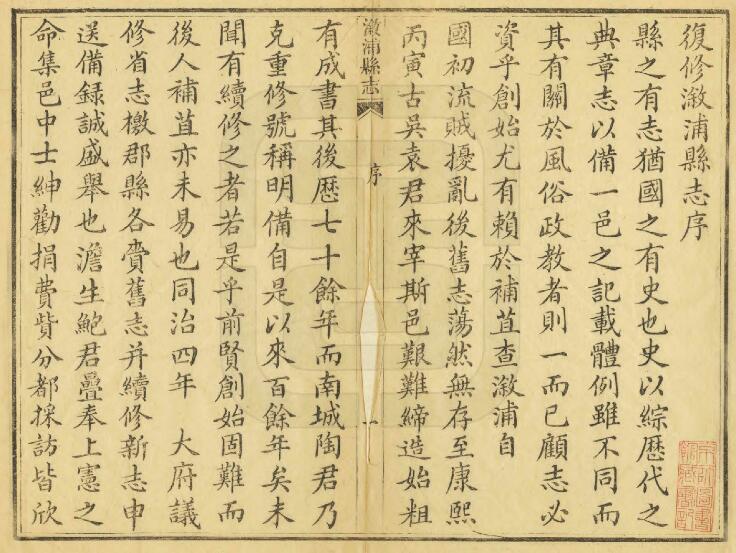 復修漵浦縣志序
縣之有志猶國之有史也史以綜歷代之
典章志以備一邑之記載體例雖不同而
其有關於風俗政教者則一而已顧志必
資乎創始尤有賴於補苴查漵浦自
國初流賊擾亂後舊志蕩然無存至康熙
丙寅古吳袁君來宰斯邑艱難締造始粗
漵浦縣志
序
一
有成書其後歷七十餘年而南城陶君乃
克重修號稱明備自是以來百餘年矣未
聞有續修之者若是乎前賢創始固難而
後人補苴亦未易也同治四年 大府議
修省志檄郡縣各賫舊志并續修新志申
送備録誠盛舉也澹生鮑君疊奉上憲之
命集邑中士紳勸捐費貲分都採訪皆欣